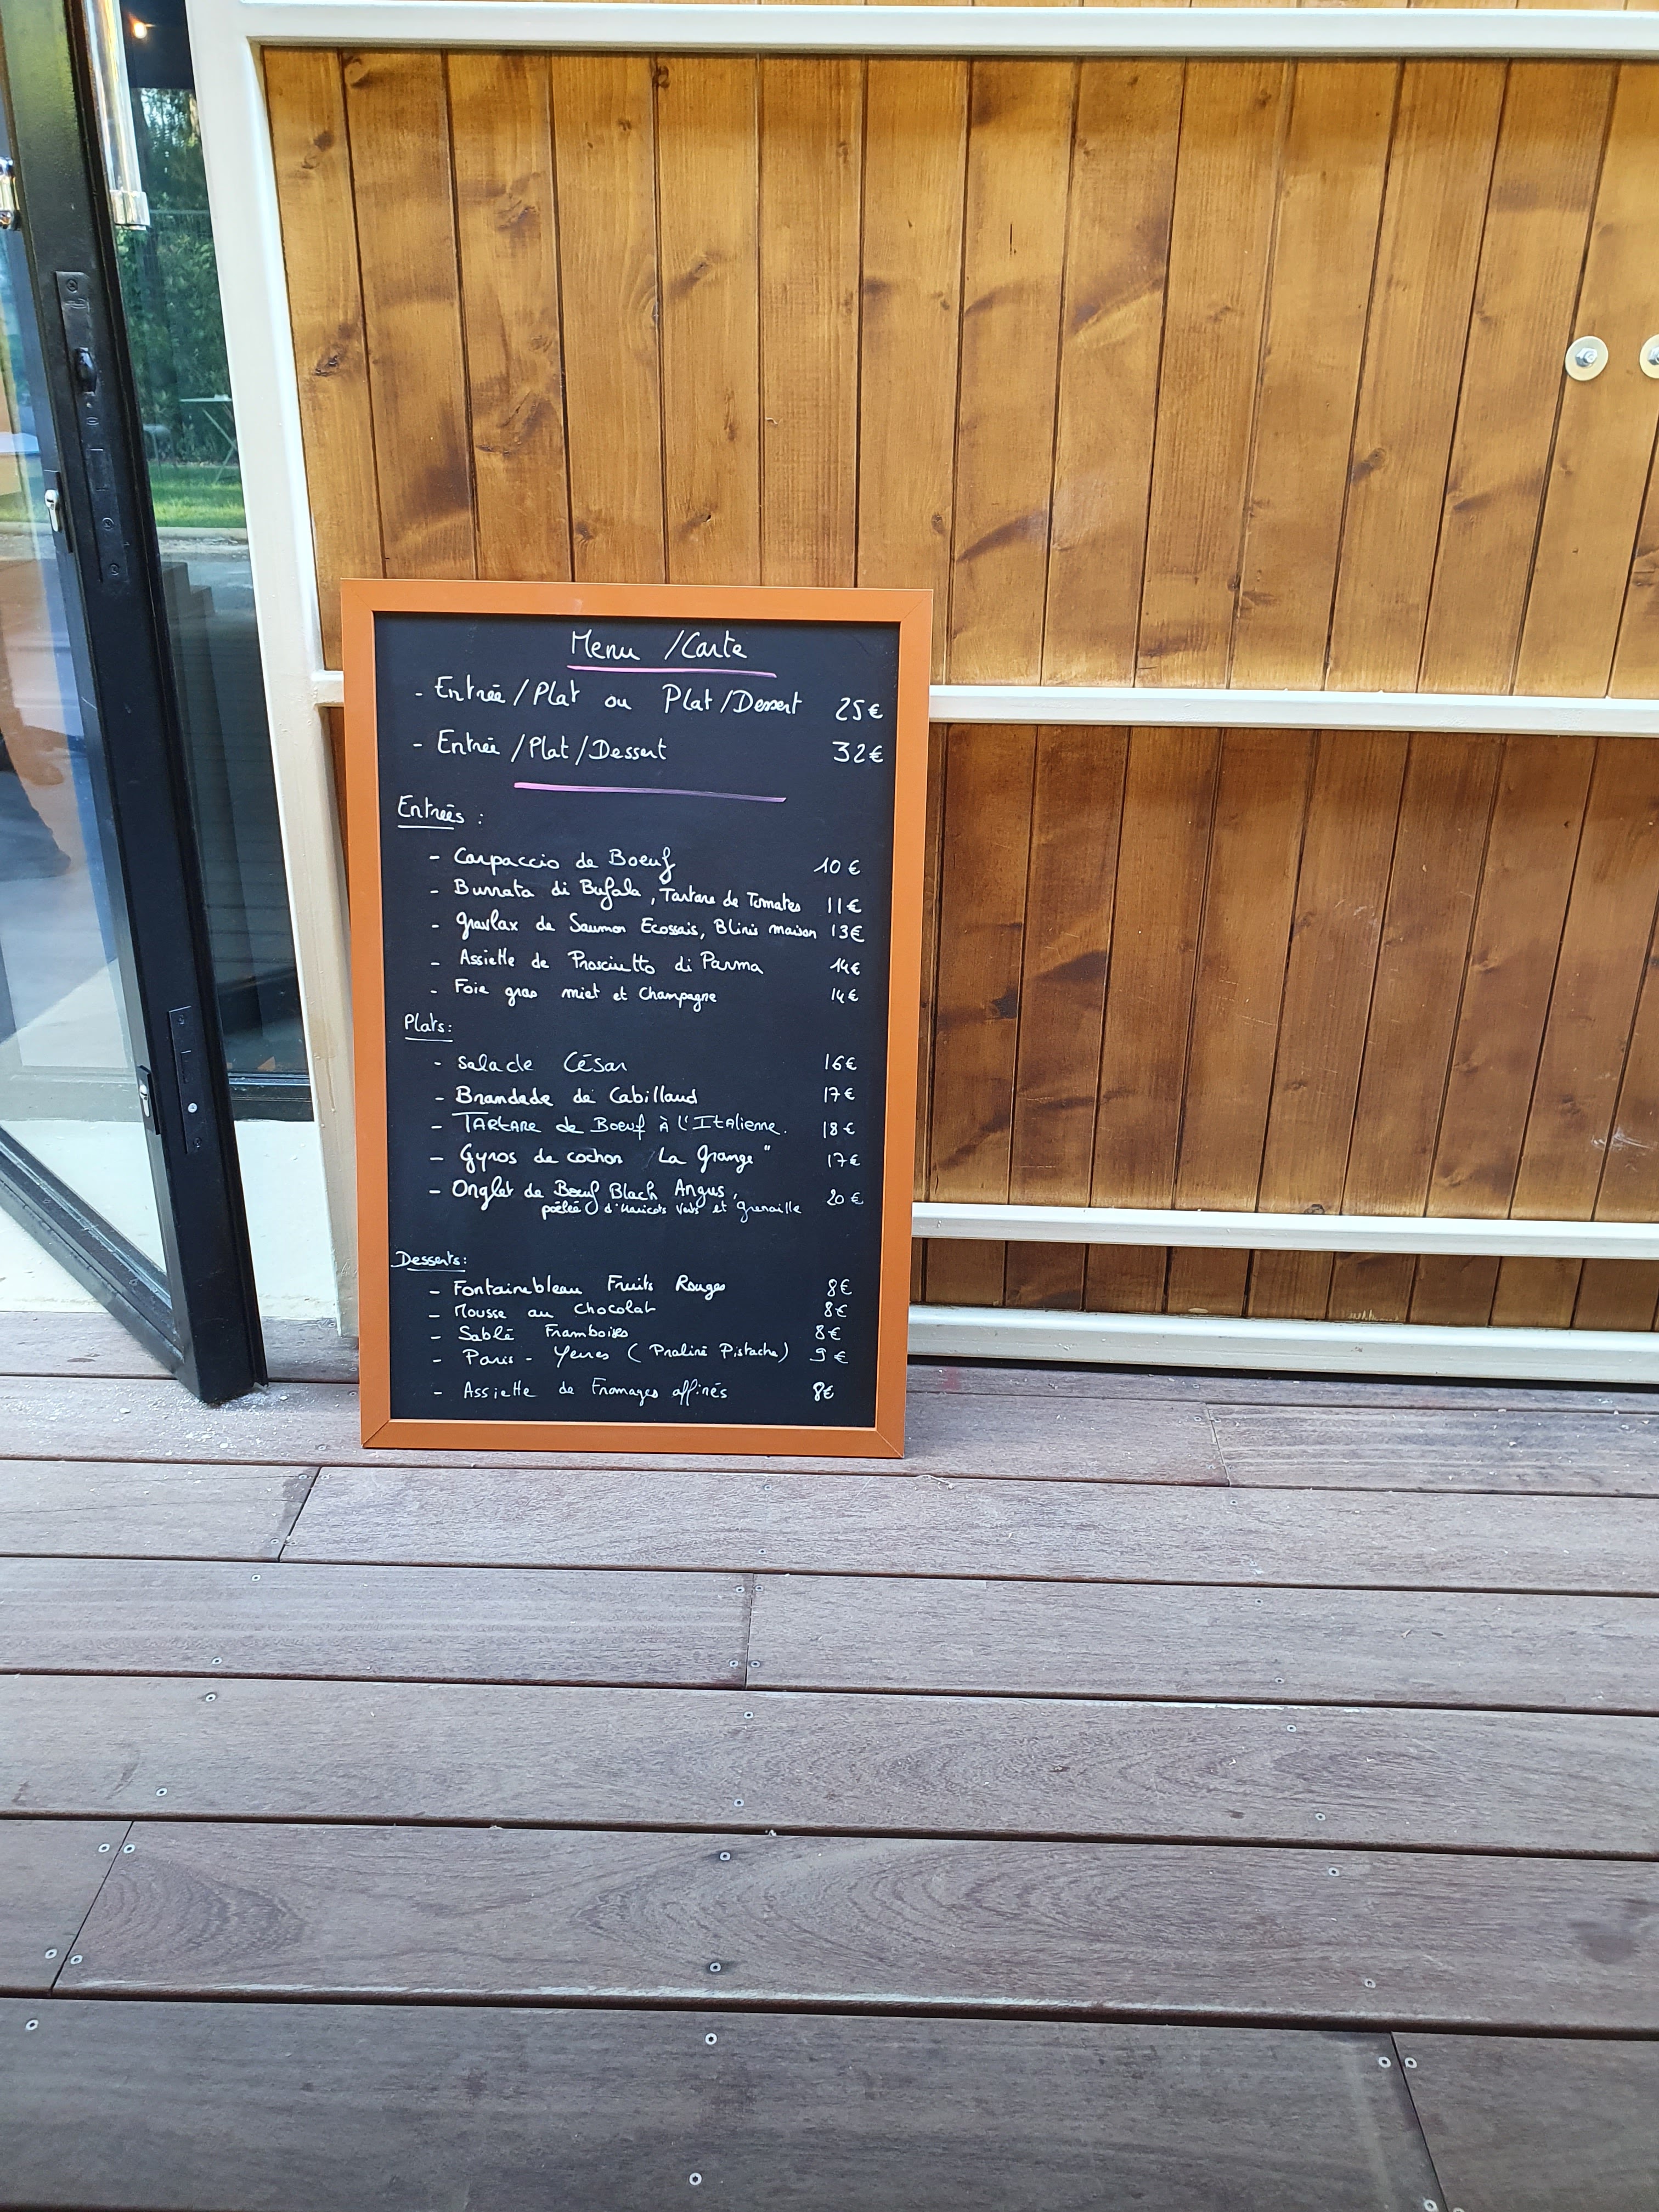 Menu /Carte
- Entrée/Plat ou Plat/Dessert 25€
- Entrée/Plat/Dessert 32€
Entrées :
- Carpaccio de Boeuf 10€
- Burrata di Bufala, Tartare de Tomates 11€
- gravlax de Saumon Ecossais, Blinis maison 13€
- Assiette de Prosciutto di Parma 14€
- Foie gras miel et Champagne 14€
Plats:
- Salade César 16€
- Brandade de Cabillaud 17€
- TARTARE de Boeuf à l'Italienne. 18€
- Gyros de cochon "La Grange" 17€
- Onglet de Boeuf Black Angus, 20€
poêlée d'Haricots Verts et grenaille
Desserts:
- Fontainebleau Fruits Rouges 8€
- Mousse au Chocolat 8€
- Sablé Framboises 8€
- Paris-Yerres (Praliné Pistache) 9€
- Assiette de Fromages affinés 8€